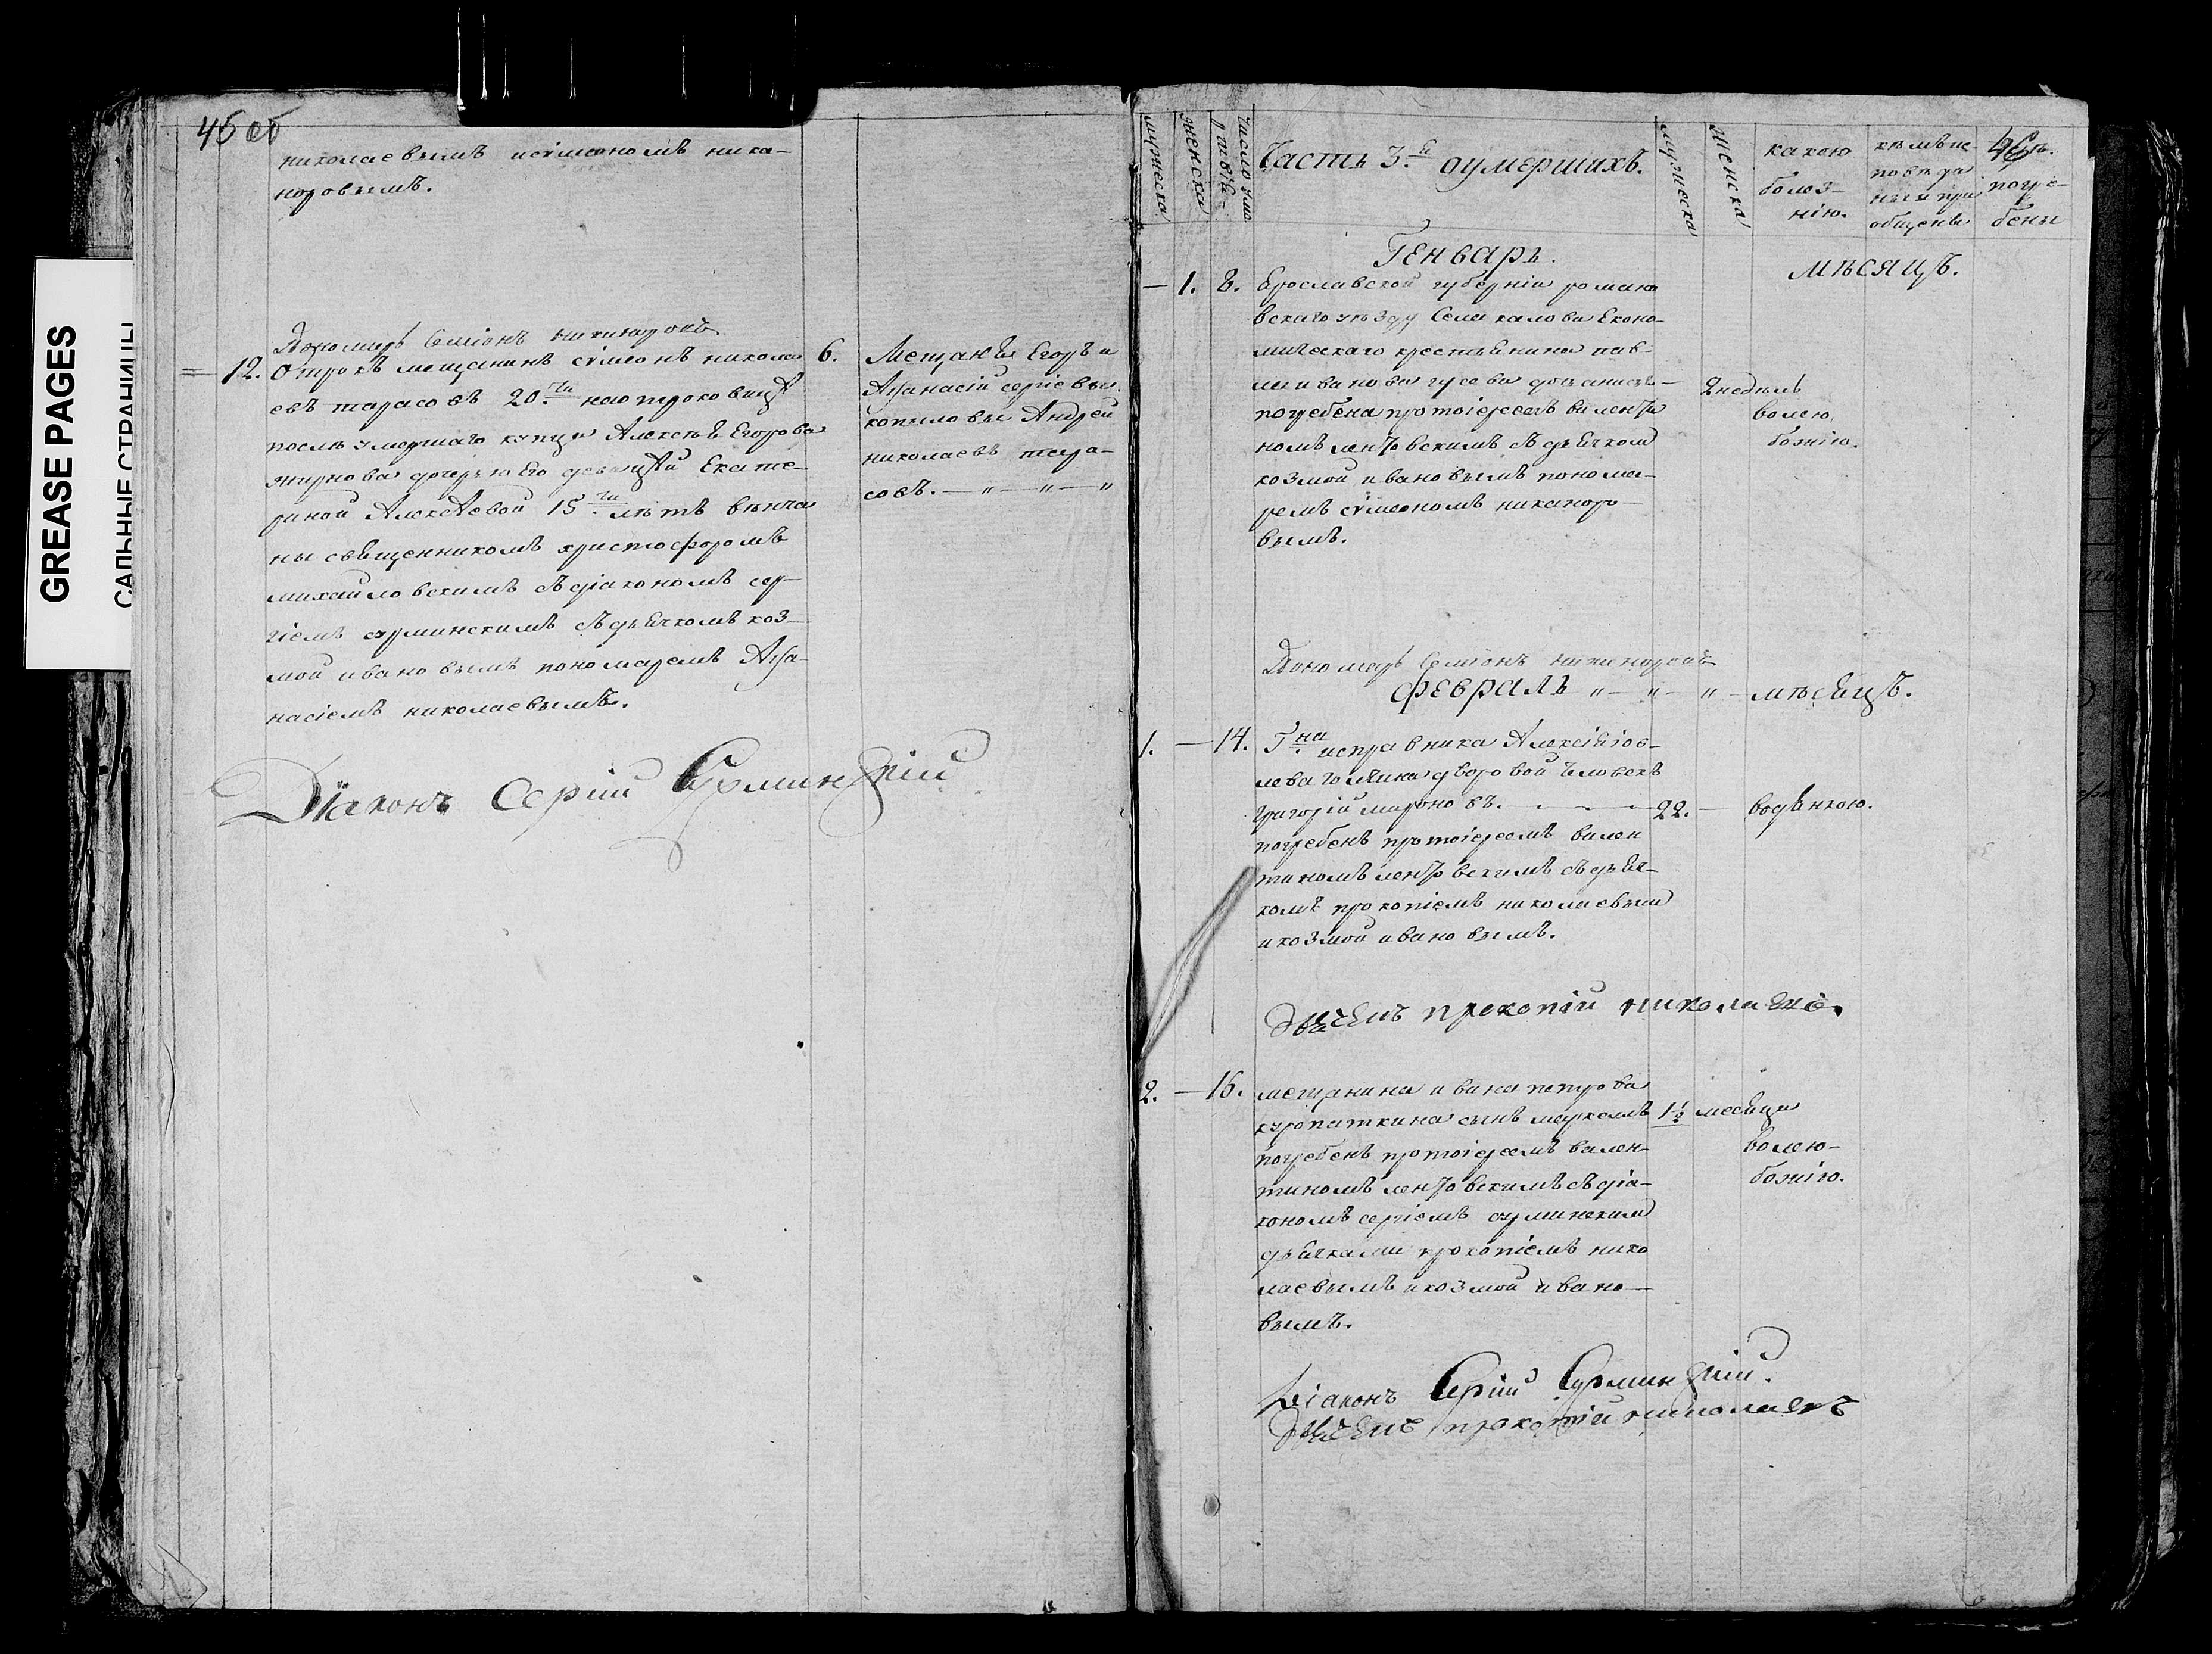 GREASE PAGES
САЛЬНЫЕ СТРАНИЦЫ
45 об
николаевымъ исѵмеономъ ника-
норовымъ.
Пономарь Семіонъ никаноровъ
12. Отрокъ мещанинъ сѵмеонъ никола 6.
евъ тарасовъ 20.ти наотроковицѣ
послѣ умершаго купца Алексѣя Егорова
жирнова дочерью Его девицей Екате-
риной Алексѣевой 15.ти лѣтъ венча
ны священникомъ христофоромъ
михайловскимъ съ діакономъ сер-
гіемъ сурминскимъ съ дьячкомъ коз-
мой ивановымъ пономаремъ Афа-
насіемъ николаевымъ.
Мещане Егоръ и
Афанасій сергіевы
копыловы Андрей
николаевъ тара-
совъ. — „ — „ — „
Діаконъ Сергій Сурминскій
мужеска
женска
Часть 3.я оумершихъ.
мужеска
женска
какою
болез-
нію.
кѣмъ ис-
поведа
ны и при
общены
46
погре-
бены
Генварь.
мѣсяцъ.
— 1. 8. Ерославской губерніи романо
вскаго уѣзду Села Економи-
ческаго крестьянина пав-
ла иванова гусева дочь анись-
погребена протоіереемъ валенти
номъ лентовскимъ съ дьячком
козмой ивановымъ понома-
ремъ сѵмеономъ никаноро-
вымъ.
2 недель
волею
божіею.
Пономарь Семіонъ никаноровъ
Февраль „ — „ — „ — мѣсяцъ.
1. — 14. Гна исправника Алексѣя
дворовой человекъ
григорій мироновъ. — — — 22. — водянкою.
погребенъ протоіереемъ вален
тиномъ лентовскимъ съ дьяч-
комъ прокопіемъ николаевым
и козмой ивановымъ.
Дьячекъ прокопій николаевъ.
2. — 16. мещанина ивана петрова
куропаткина сынъ маркелъ 1½ месяца
погребенъ протоіереемъ вален-
тиномъ лентовскимъ съ діа-
кономъ сергіемъ сурминским
дьячками прокопіемъ нико
лаевымъ и козмой ивано-
вымъ.
волею-
божіею.
Діаконъ Сергій Сурминскій.
Дьячекъ прокопій николаевъ